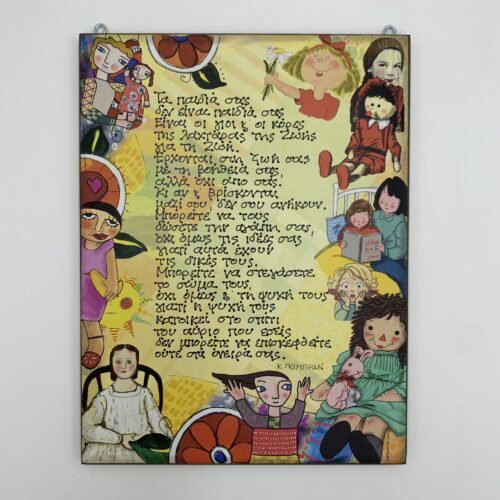 Τα παιδιά σας
δεν είναι παιδιά σας
Είναι οι γιοι & οι κόρες
της λαχτάρας της Ζωής
για τη Ζωή.
Έρχονται στη ζωή σας
με τη βοήθειά σας
αλλά όχι από σας,
κι αν & βρίσκονται
μαζί σου δεν σου ανήκουν.
Μπορείτε να τους
δώσετε την αγάπη σας,
όχι όμως τις ιδέες σας
γιατί αυτά έχουν
τις δικές τους.
Μπορείτε να στεγάσετε
το σώμα τους,
όχι όμως & τη ψυχή τους
γιατί η ψυχή τους
κατοικεί στο σπίτι
του αύριο που εσείς
δεν μπορείτε να επισκεφθείτε
ούτε στα όνειρά σας.
Κ. ΓΚΙΜΠΡΑΝ